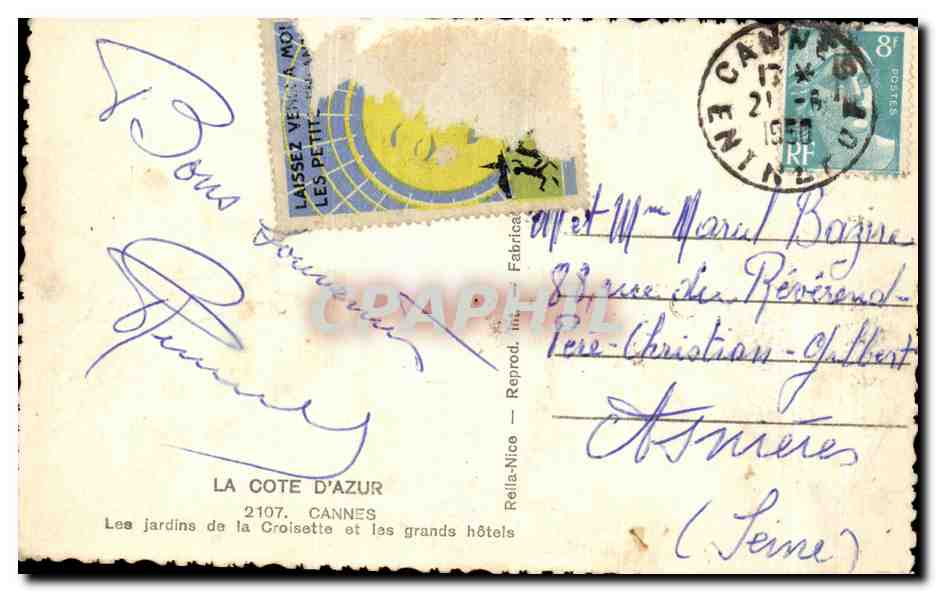 Bons
Souvenirs
LAISSEZ VENIR A MOI
LES PETITS
CANNES
17 *
21 - 8
1950
8F
POSTES
RF
M et Mme Marcel Bazire
88, rue du Révérend-
Père-Christian-Gilbert
Asnières
(Seine)
Rella-Nice — Reprod. int. — Fabrica
CPAPHIL
LA COTE D'AZUR
2107. CANNES
Les jardins de la Croisette et les grands hôtels